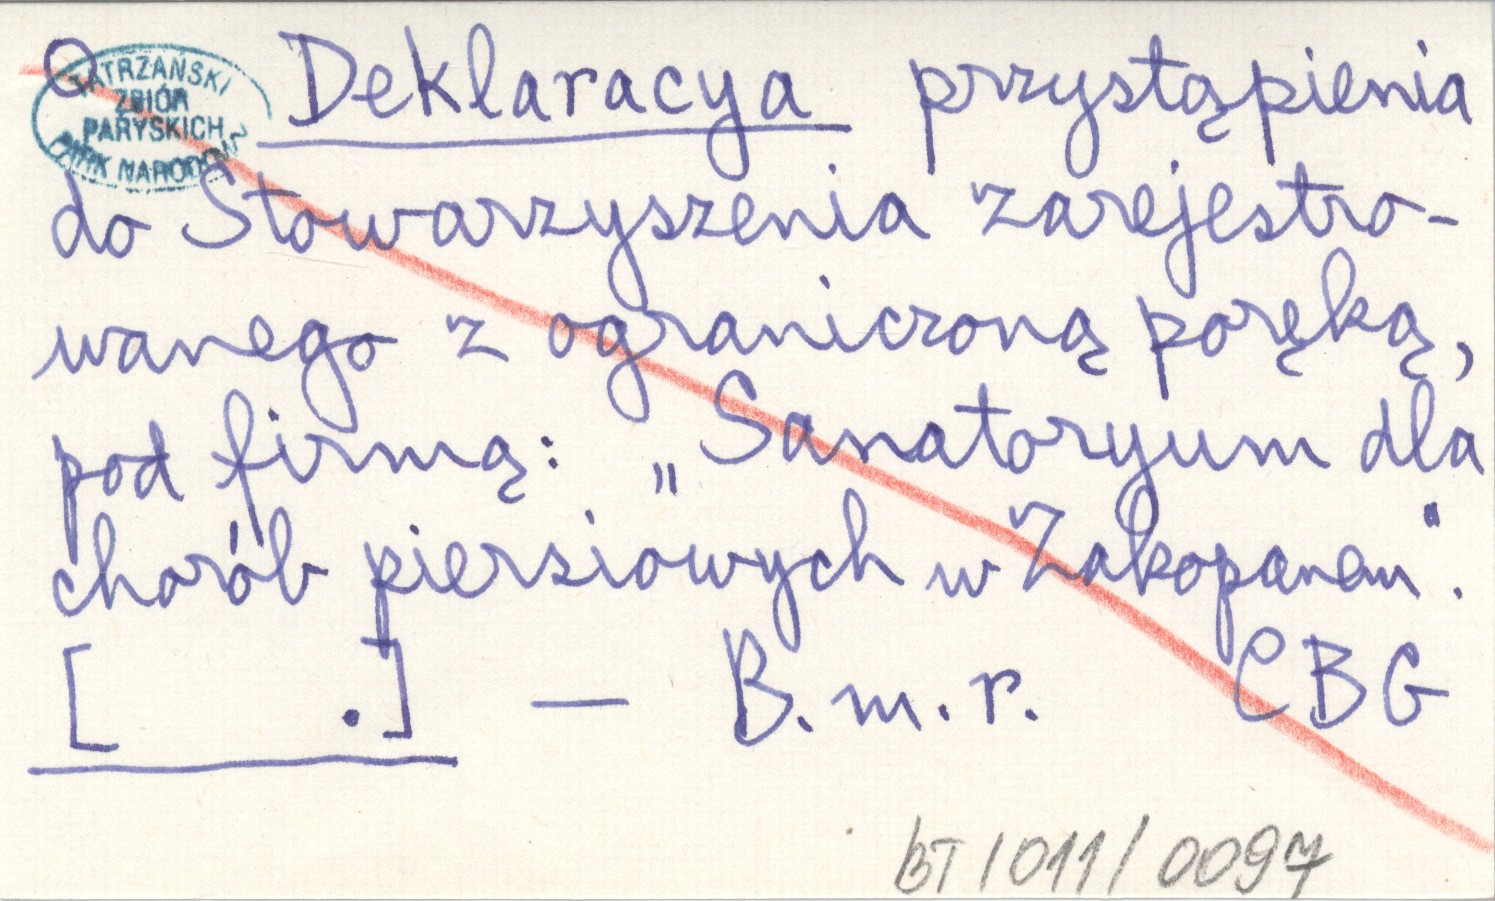 TATRZAŃSKI
ZBIÓR
PARYSKICH
PARK NARODOWY
O Deklaracya przystąpienia
do Stowarzyszenia zarejestro-
wanego z ograniczoną poręką,
pod firmą: „Sanatoryum dla
chorób piersiowych w Zakopanem".
[ .] — B.m.r. CBG
BT/011/0097